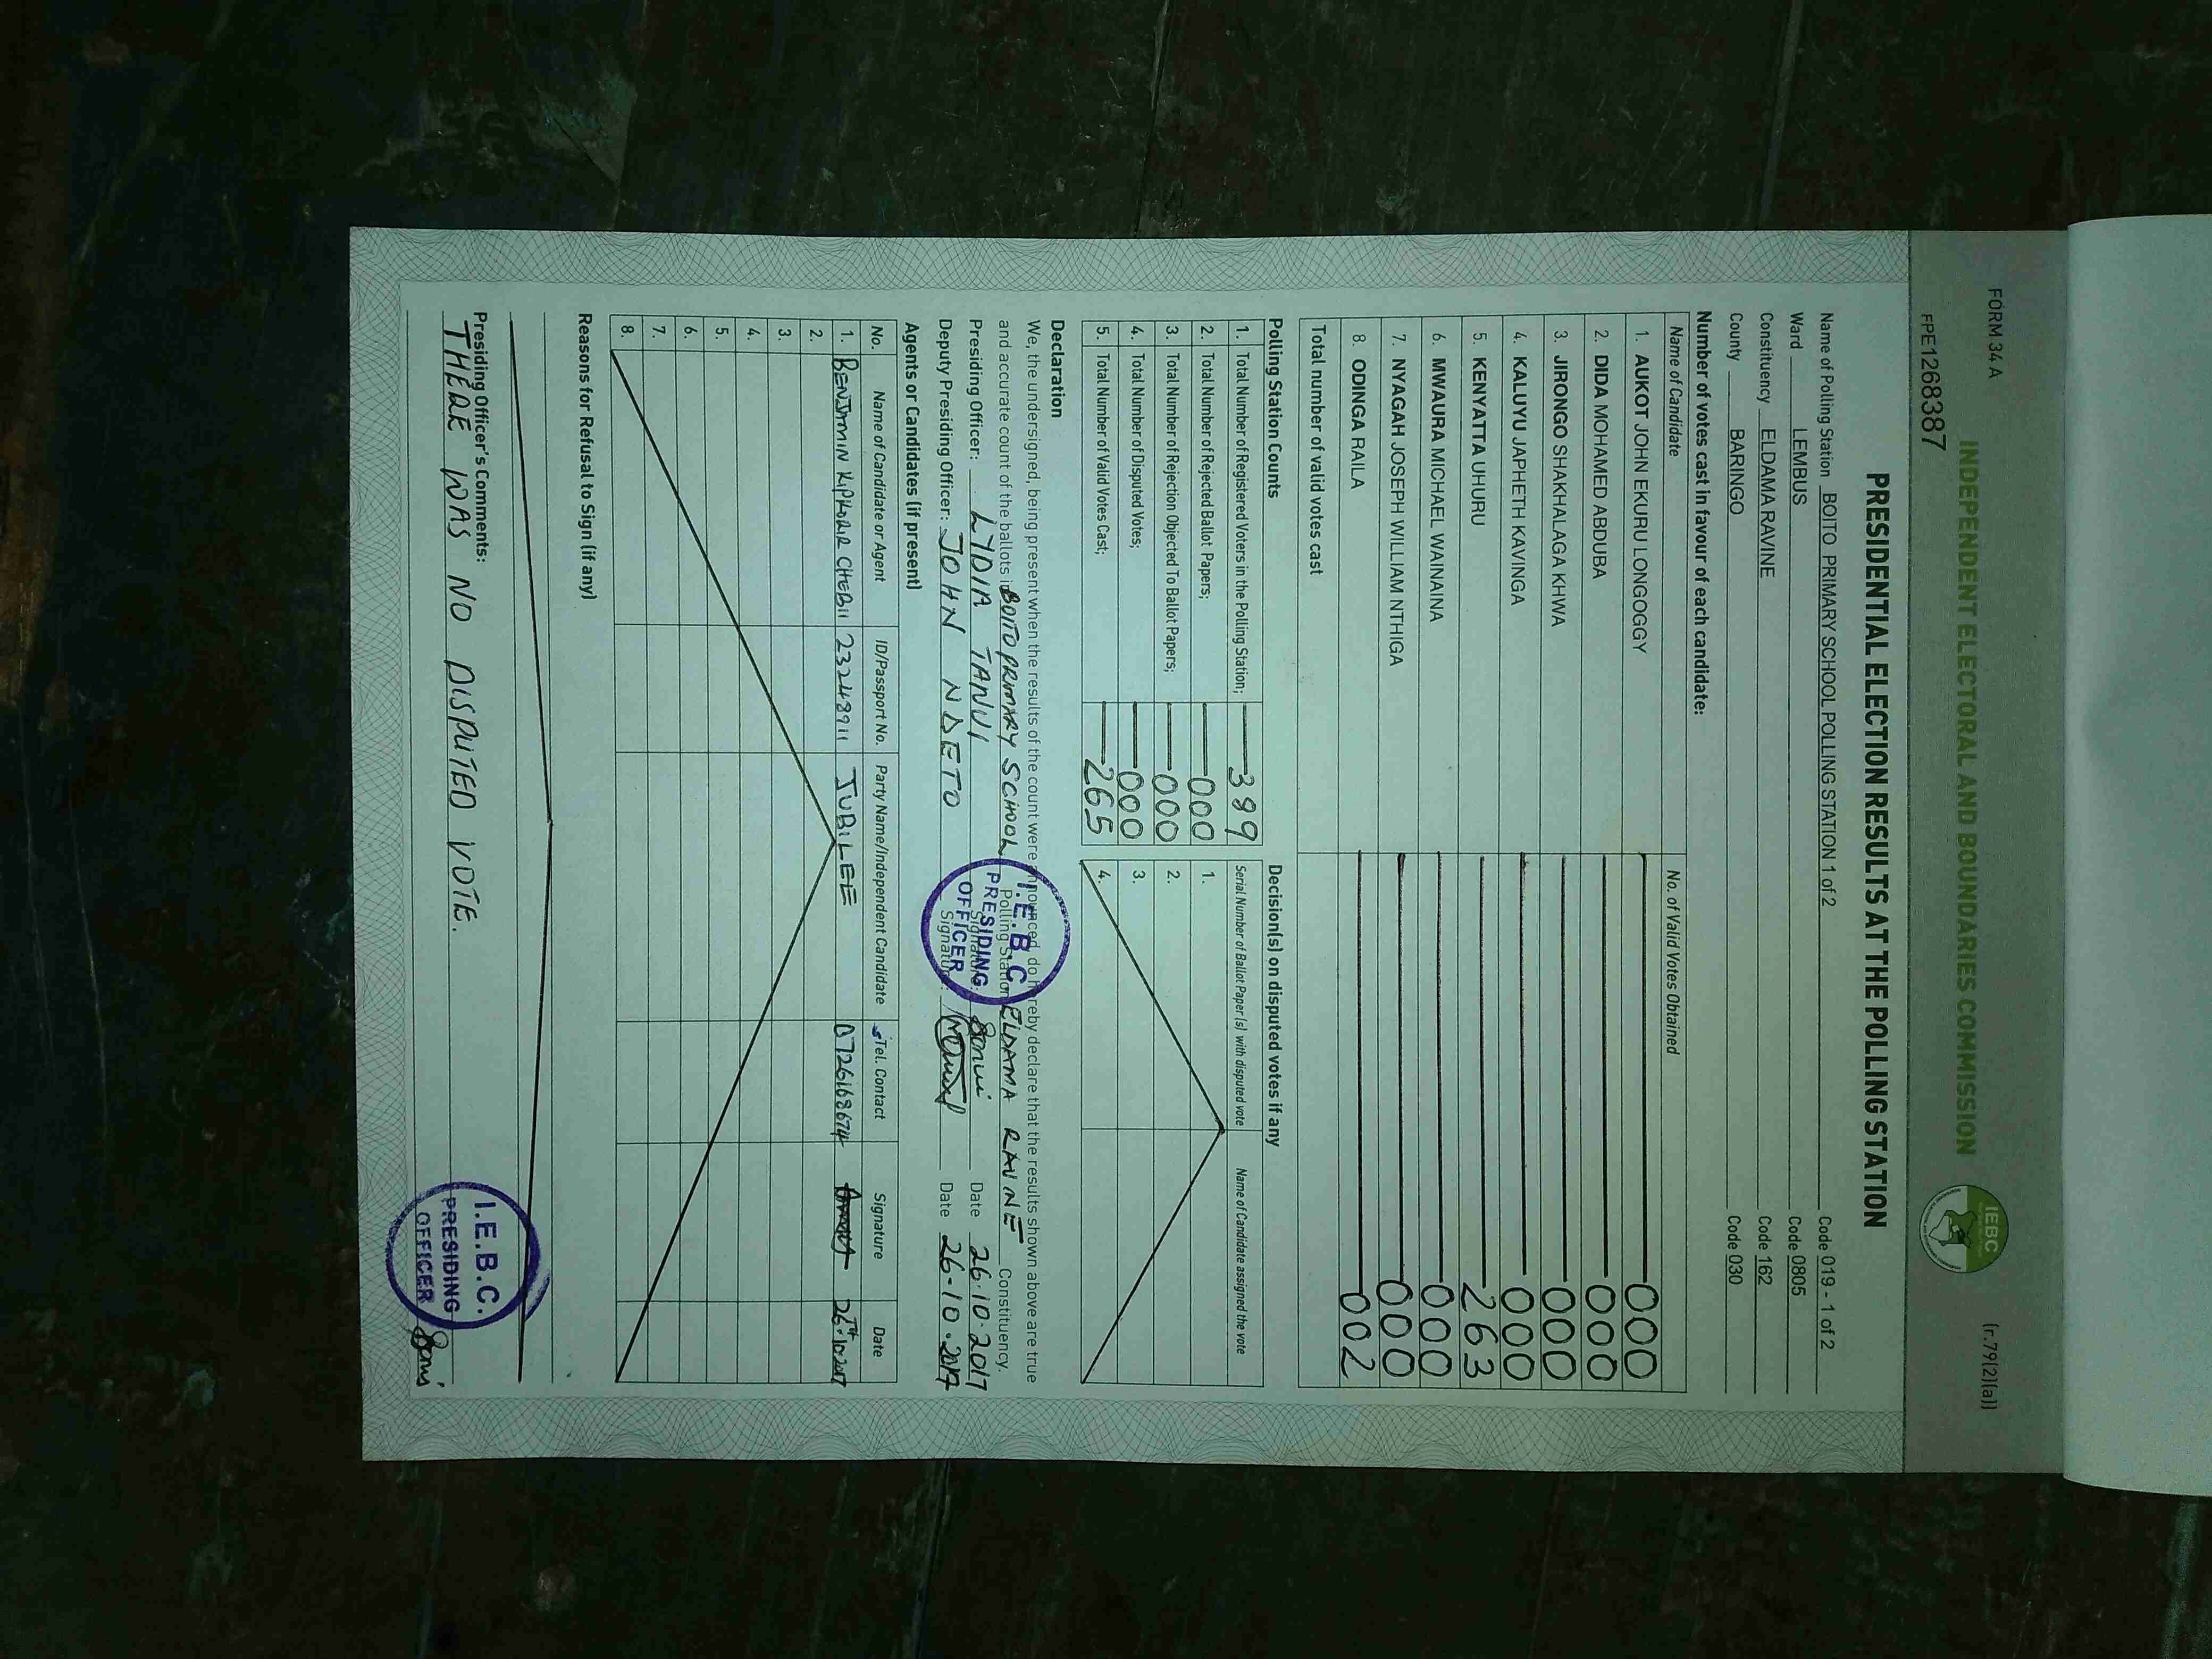 FORM 34 A
(r.79(2)(a))
INDEPENDENT ELECTORAL AND BOUNDARIES COMMISSION
IEBC
FPE1268387
PRESIDENTIAL ELECTION RESULTS AT THE POLLING STATION
Name of Polling Station BOITO PRIMARY SCHOOL POLLING STATION 1 of 2 Code 019 - 1 of 2
Ward LEMBUS Code 0805
Constituency ELDAMA RAVINE Code 162
County BARINGO Code 030
Number of votes cast in favour of each candidate:
Name of Candidate No. of Valid Votes Obtained
1. AUKOT JOHN EKURU LONGOGGY 000
2. DIDA MOHAMED ABDUBA 000
3. JIRONGO SHAKHALAGA KHWA 000
4. KALUYU JAPHETH KAVINGA 000
5. KENYATTA UHURU 263
6. MWAURA MICHAEL WAINAINA 000
7. NYAGAH JOSEPH WILLIAM NTHIGA 000
8. ODINGA RAILA 002
Total number of valid votes cast
Polling Station Counts
1. Total Number of Registered Voters in the Polling Station; 399
2. Total Number of Rejected Ballot Papers; 000
3. Total Number of Rejection Objected To Ballot Papers; 000
4. Total Number of Disputed Votes; 000
5. Total Number of Valid Votes Cast; 265
Decision(s) on disputed votes if any
Serial Number of Ballot Paper (s) with disputed vote Name of Candidate assigned the vote
1.
2.
3.
4.
Declaration
We, the undersigned, being present when the results of the count were announced, do hereby declare that the results shown above are true
and accurate count of the ballots in BOITO PRIMARY SCHOOL Polling Station ELDAMA RAVINE Constituency.
Presiding Officer: LYDIA TANUI Signature: Date 26.10.2017
Deputy Presiding Officer: JOHN NDETO Signature: Date 26.10.2017
I.E.B.C
PRESIDING
OFFICER
Agents or Candidates (if present)
No. Name of Candidate or Agent ID/Passport No. Party Name/Independent Candidate Tel. Contact Signature Date
1. CHEBII 23248911 JUBILEE 0726168674 26TH.10.2017
2.
3.
4.
5.
6.
7.
8.
Reasons for Refusal to Sign (if any)
Presiding Officer's Comments:
THERE WAS NO DISPUTED VOTE.
I.E.B.C.
PRESIDING
OFFICER